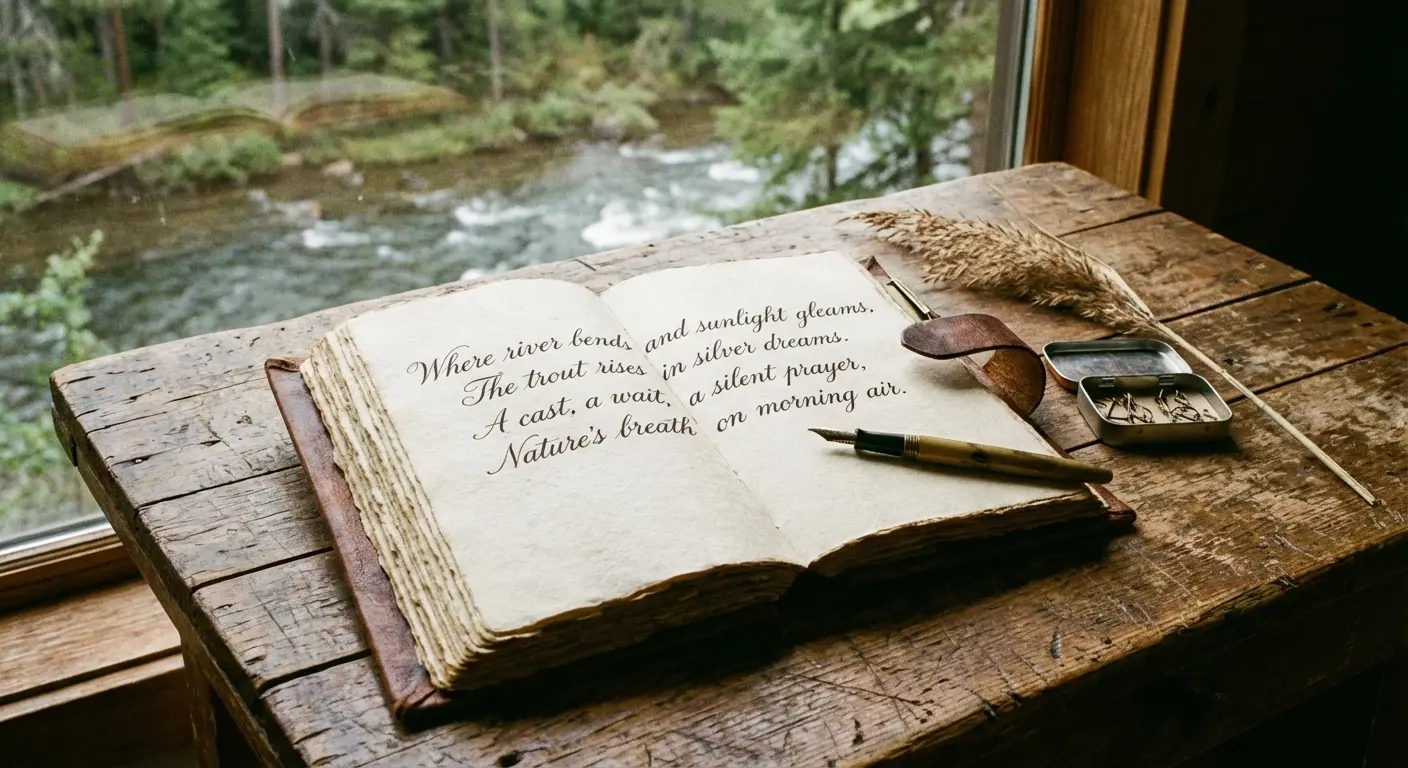 Where river bends and sunlight gleams,
The trout rises in silver dreams.
A cast, a wait, a silent prayer,
Nature's breath on morning air.